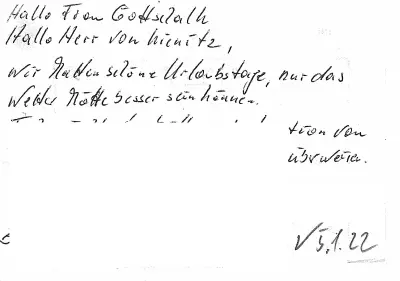 Hallo Frau Gottschalk
Hallo Herr von Kienitz,
wir hatten schöne Urlaubstage, nur das
Wetter hätte besser sein können.
von
5.1.22